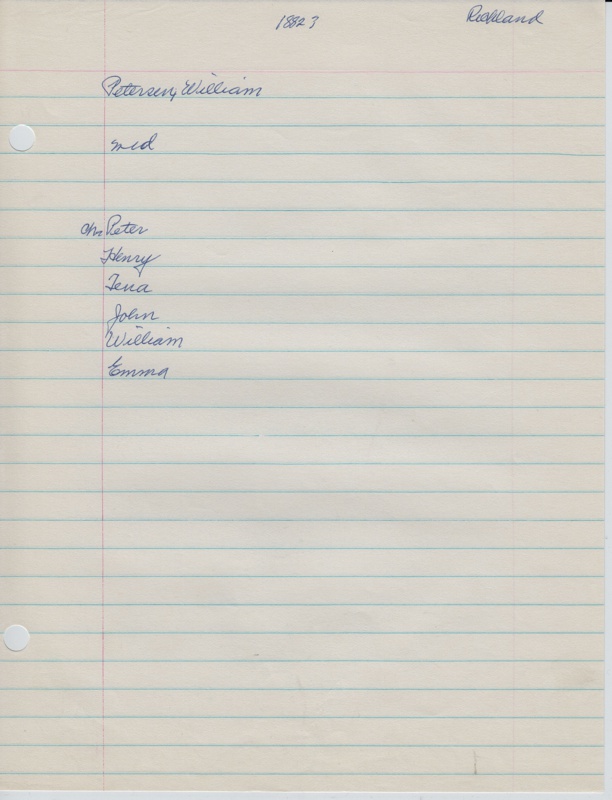 1882 3 Richland
Petersen, William
md
ch. Peter
Henry
Tena
John
William
Emma